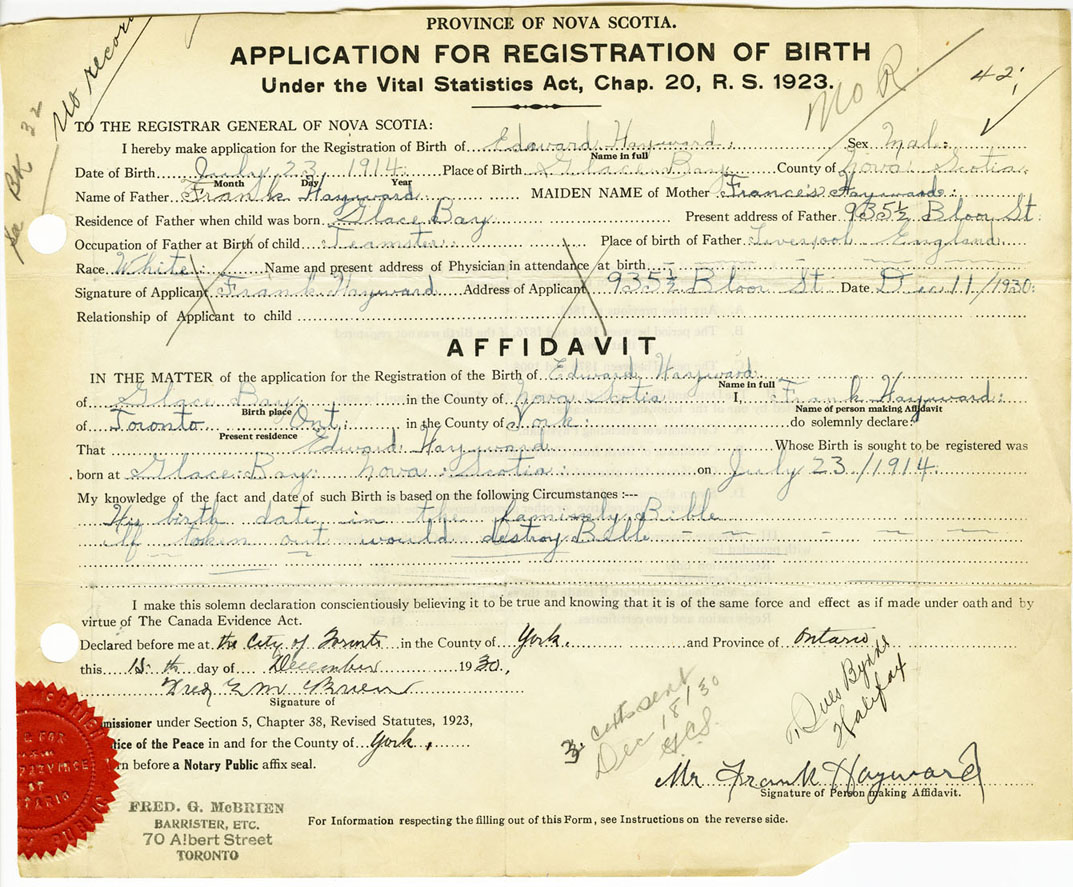 PROVINCE OF NOVA SCOTIA.
APPLICATION FOR REGISTRATION OF BIRTH
Under the Vital Statistics Act, Chap. 20, R. S. 1923.
No record
BK 32
No R.
42
TO THE REGISTRAR GENERAL OF NOVA SCOTIA:
I hereby make application for the Registration of Birth of Edward Hayward. Sex Mal.
Name in full
Date of Birth July 23 1914. Place of Birth Glace Bay County of Nova Scotia
Month Day Year
Name of Father Frank Hayward MAIDEN NAME of Mother Frances Hayward.
Residence of Father when child was born Glace Bay Present address of Father 935½ Bloor St.
Occupation of Father at Birth of child Teamster. Place of birth of Father Liverpool England
Race White. Name and present address of Physician in attendance at birth
Signature of Applicant Frank Hayward Address of Applicant 935½ Bloor St Date Dec 11/1930.
Relationship of Applicant to child
AFFIDAVIT
IN THE MATTER of the application for the Registration of the Birth of Edward Hayward
Name in full
of Glace Bay in the County of Nova Scotia I, Frank Hayward.
Birth place Name of person making Affidavit
of Toronto Ont. in the County of York. do solemnly declare:
Present residence
That Edward Hayward Whose Birth is sought to be registered was
born at Glace Bay. Nova Scotia. on July 23/1914.
My knowledge of the fact and date of such Birth is based on the following Circumstances :---
His birth date in the famimly Bible
If taken out would destroy Bible
I make this solemn declaration conscientiously believing it to be true and knowing that it is of the same force and effect as if made under oath and by
virtue of The Canada Evidence Act.
Declared before me at the City of Toronto in the County of York. and Province of Ontario
this 15th day of December 1930,
Fred G McBrien
Signature of
missioner under Section 5, Chapter 38, Revised Statutes, 1923,
tice of the Peace in and for the County of York.
rn before a Notary Public affix seal.
certs sent
Dec 18/30
Byrne
Halifax
Mr Frank Hayward
Signature of Person making Affidavit.
FRED. G. McBRIEN
BARRISTER, ETC.
70 Albert Street
TORONTO
For Information respecting the filling out of this Form, see Instructions on the reverse side.